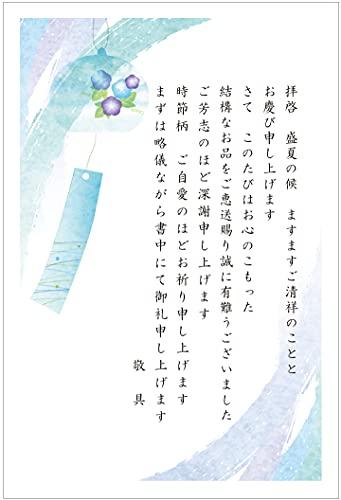 拝啓　盛夏の候　ますますご清祥のことと
お慶び申し上げます
さて　このたびはお心のこもった
結構なお品をご恵送賜り誠に有難うございました
ご芳志のほど深謝申し上げます
時節柄　ご自愛のほどお祈り申し上げます
まずは略儀ながら書中にて御礼申し上げます
敬具